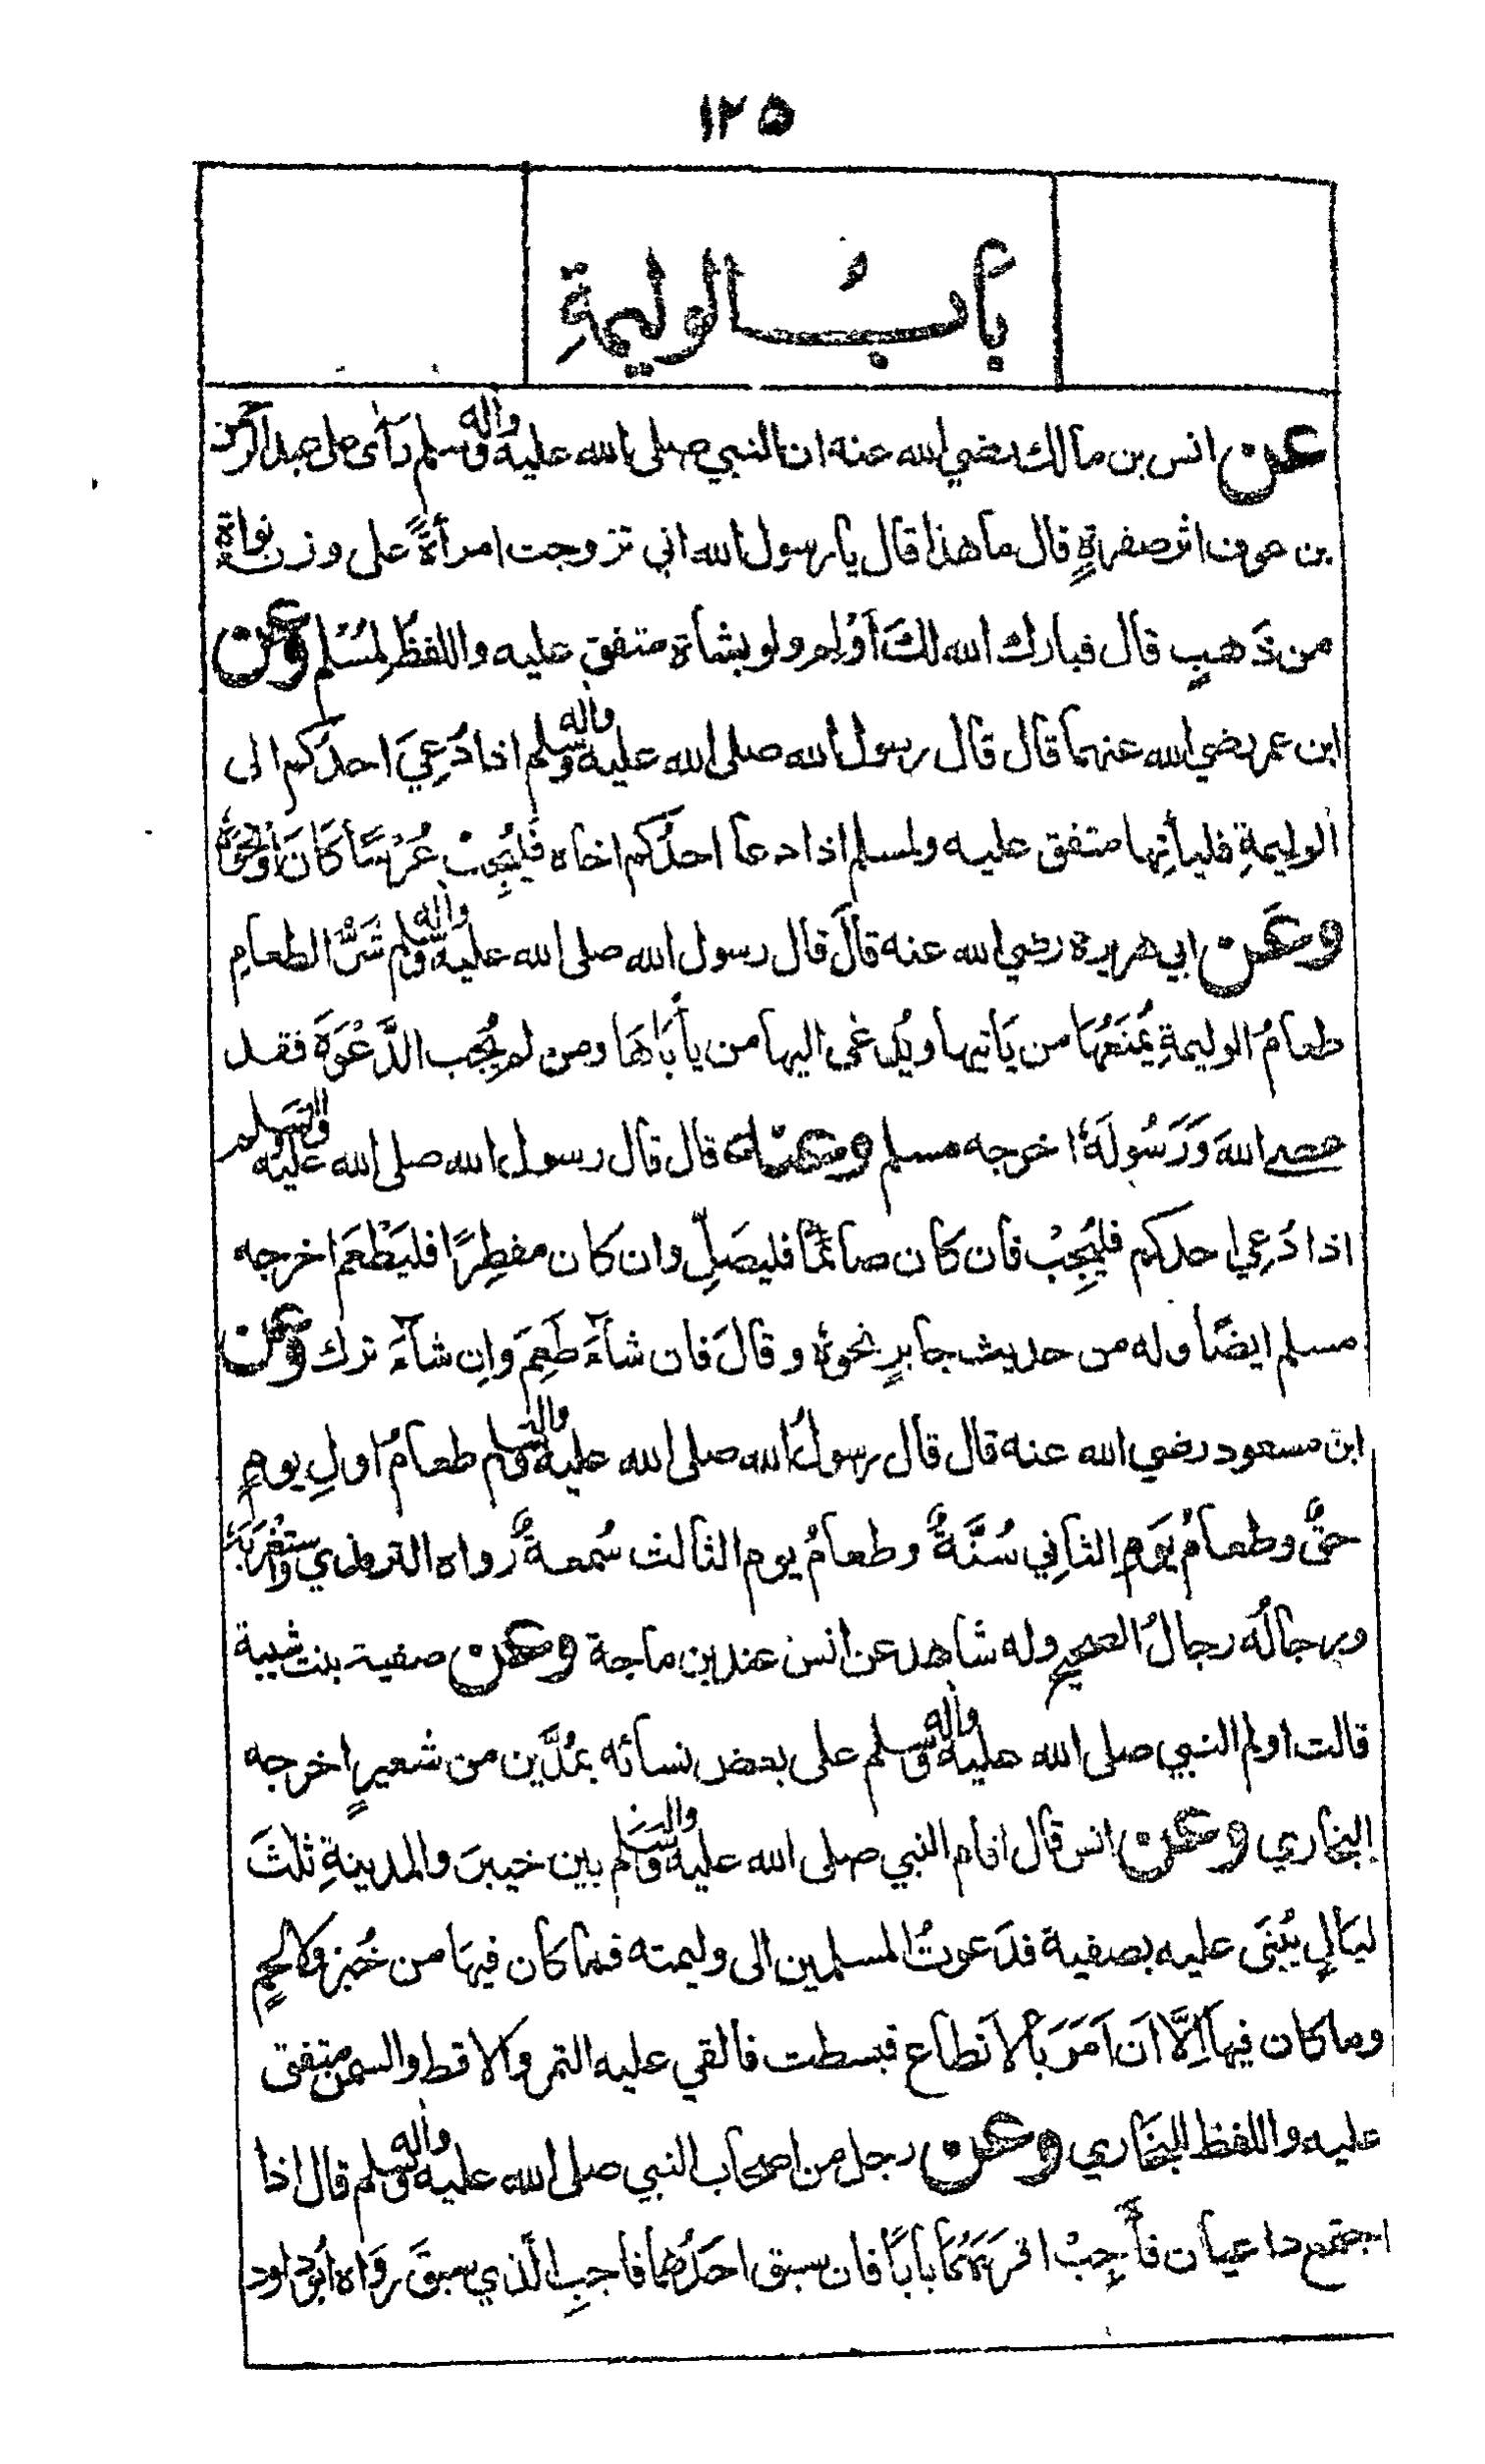 ١٢٥
بابُ الوليمةِ
عن انس بن مالك رضي الله عنه ان النبي صلى الله عليه وآله وسلم رأى على عبد الرحمن
بن عوف اثر صفرةٍ قال ما هذا قال يا رسول الله اني تزوجت امرأةً على وزن نواة
من ذَهبٍ قال فبارك الله لكَ أَوْلِم ولو بشاة متفق عليه واللفظُ لِمُسْلم وعن
ابن عمر رضي الله عنهما قال قال رسول الله صلى الله عليه وآله وسلم اذا دُعِيَ احدُكم الى
الوليمةِ فليأتِها متفق عليه ولمسلم اذا دعا احدُكم اخاه فَليُجِبْ عُرْسًا كَانَ أوْ نحوَهُ
وعَن ابي هريرة رضي الله عنه قالَ قال رسول الله صلى الله عليه وآله وسلم شَرُّ الطعامِ
طعامُ الوليمةِ يُمْنَعُهَا من يَاتيها ويُدْعَى اليها من يأبَاهَا ومن لم يُجب الدَّعْوَةَ فقد
عصى اللهَ وَرَسُولَهُ اخرجه مسلم وعنه قال قال رسول الله صلى الله عليه وآله وسلم
اذا دُعِي احدكم فليُجِبْ فان كان صائمًا فليصَلِّ وان كان مفطِرًا فليَطْعَم اخرجه
مسلم ايضًا وله من حديث جابرٍ نحوهُ وقالَ فان شآءَ طَعِمَ وإن شآءَ ترك وعن
ابن مسعود رضي الله عنه قال قال رسولُ الله صلى الله عليه وآله وسلم طعامُ اولِ يومٍ
حقٌّ وطعامُ يَومِ الثاني سُنَّةٌ وطعامُ يوم الثالث سُمعةٌ رواه الترمذي واستَغْرَبَهُ
ورجالُه رجالُ الصحيح وله شاهد عن انس عند بن ماجة وعن صفية بنت شيبة
قالت اولم النبي صلى الله عليه وآله وسلم على بعض نسائه بمُدَّين من شعيرٍ اخرجه
البخاري وعن انس قال اقام النبي صلى الله عليه وآله وسلم بين خيبرَ والمدينةِ ثلثَ
ليَالٍ يُبْنَى عليه بصفية فدَعوتُ المسلمين الى وليمته فما كان فيهَا من خُبز ولا لحمٍ
وما كان فيها اِلَّا اَن اَمَرَ بالاَنطاع فبسطت فالقي عليه التمر والاقط والسمن متفق
عليه واللفظ للبخَاري وعن رجل من اصحاب النبي صلى الله عليه وآله وسلم قال اذا
اجتمع داعيان فأجِبْ اقربَهُمَا بابًا فان سبق احَدُهُما فاجبِ الَّذي سبقَ رَوَاه ابُو داود